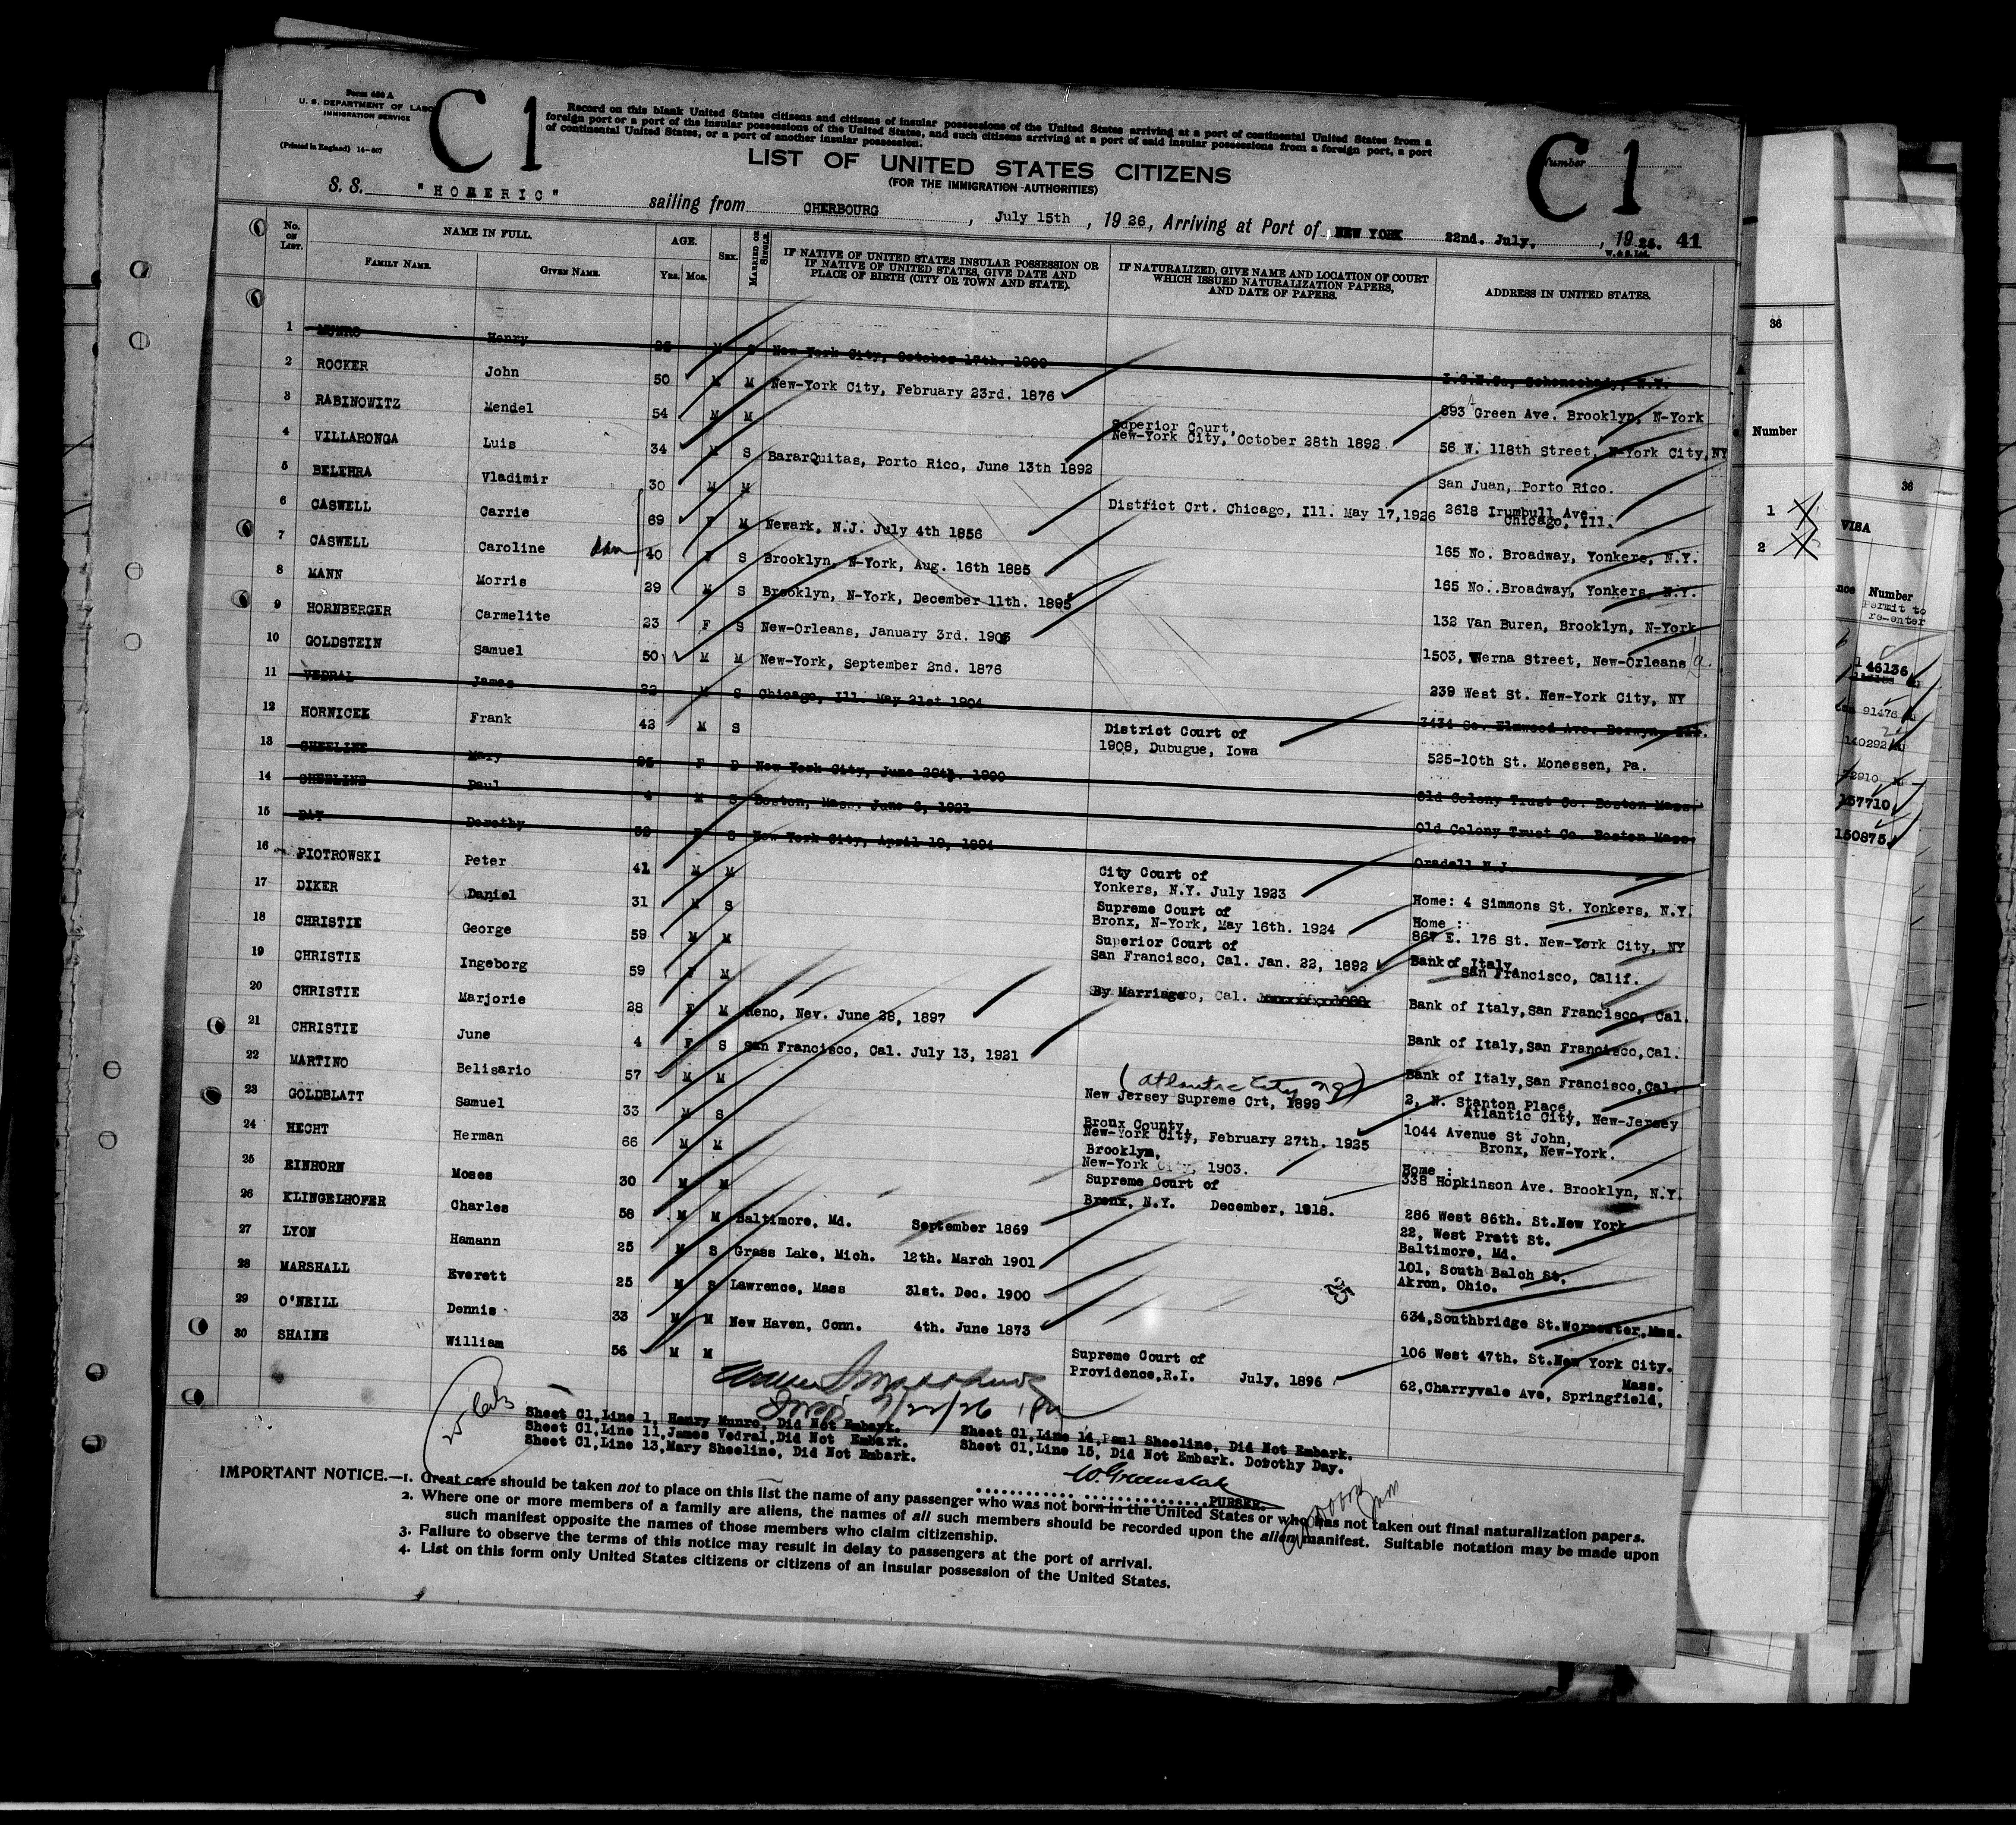 Form 630 A
U. S. DEPARTMENT OF LABOR
IMMIGRATION SERVICE
(Printed in England) 14-607
C 1
Record on this blank United States citizens and citizens of insular possessions of the United States arriving at a port of continental United States from a
foreign port or a port of the insular possessions of the United States, and such citizens arriving at a port of said insular possessions from a foreign port, a port
of continental United States, or a port of another insular possession.
Number
C 1
LIST OF UNITED STATES CITIZENS
(FOR THE IMMIGRATION AUTHORITIES)
S. S. "HOMERIC" sailing from CHERBOURG, July 15th, 1926, Arriving at Port of NEW YORK 22nd. July, 1926. 41
No. ON LIST. NAME IN FULL. FAMILY NAME. GIVEN NAME. AGE. Yrs. Mos. SEX. MARRIED OR SINGLE. IF NATIVE OF UNITED STATES INSULAR POSSESSION OR IF NATIVE OF UNITED STATES, GIVE DATE AND PLACE OF BIRTH (CITY OR TOWN AND STATE). IF NATURALIZED, GIVE NAME AND LOCATION OF COURT WHICH ISSUED NATURALIZATION PAPERS, AND DATE OF PAPERS. ADDRESS IN UNITED STATES.
1 MUNRO Henry 25 M S New York City, October 17th. 1900 I.G.E.Co, Schenechady, N.Y.
2 ROCKER John 50 M M New-York City, February 23rd. 1876 893 Green Ave. Brooklyn, N-York
3 RABINOWITZ Mendel 54 M M Superior Court, New-York City, October 28th 1892 56 W. 118th Street, N-York City, NY
4 VILLARONGA Luis 34 M S BararQuitas, Porto Rico, June 13th 1892 San Juan, Porto Rico.
5 BELEHRA Vladimir 30 M M District Crt. Chicago, Ill. May 17,1926 2618 Irumbull Ave. Chicago, Ill.
6 CASWELL Carrie 69 F M Newark, N.J. July 4th 1856 165 No. Broadway, Yonkers, N.Y.
7 CASWELL Caroline 40 F S Brooklyn, N-York, Aug. 16th 1885 165 No. Broadway, Yonkers, N.Y.
8 MANN Morris 29 M S Brooklyn, N-York, December 11th. 1895 132 Van Buren, Brooklyn, N-York
9 HORNBERGER Carmelite 23 F S New-Orleans, January 3rd. 1903 1503, Verna Street, New-Orleans
10 GOLDSTEIN Samuel 50 M M New-York, September 2nd. 1876 239 West St. New-York City, NY
11 VEDRAL James 22 M S Chicago, Ill. May 21st 1904 3434 So. Elmwood Ave. Berwyn, Ill.
12 HORNICEK Frank 42 M S District Court of 1908, Dubugue, Iowa 525-10th St. Monessen, Pa.
13 SHEELINE Mary 26 F D New York City, June 29th. 1900 Old Colony Trust Co. Boston Mass.
14 SHEELINE Paul 4 M S Boston, Mass. June 6, 1921 Old Colony Trust Co. Boston Mass
15 DAY Dorothy 32 F S New York City, April 19, 1894 Oradell N.J.
16 PIOTROWSKI Peter 41 M M City Court of Yonkers, N.Y. July 1923 Home: 4 Simmons St. Yonkers, N.Y.
17 DIKER Daniel 31 M S Supreme Court of Bronx, N-York, May 16th. 1924 Home : 867 E. 176 St. New-York City, NY
18 CHRISTIE George 59 M M Superior Court of San Francisco, Cal. Jan. 22, 1892 Bank of Italy, San Francisco, Calif.
19 CHRISTIE Ingeborg 59 F M By Marriage Bank of Italy, San Francisco, Cal.
20 CHRISTIE Marjorie 28 F M Reno, Nev. June 28, 1897 Bank of Italy, San Francisco, Cal.
21 CHRISTIE June 4 F S San Francisco, Cal. July 13, 1921 Bank of Italy, San Francisco, Cal.
22 MARTINO Belisario 57 M M (Atlantic City NJ) New Jersey Supreme Crt, 1899 2, N. Stanton Place, Atlantic City, New-Jersey
23 GOLDBLATT Samuel 33 M S Bronx County, New-York City, February 27th. 1925 1044 Avenue St John, Bronx, New-York.
24 HECHT Herman 66 M M Brooklyn, New-York City, 1903. Home : 338 Hopkinson Ave. Brooklyn, N.Y.
25 EINHORN Moses 30 M M Supreme Court of Bronx, N.Y. December, 1918. 286 West 86th. St. New York
26 KLINGELHOFER Charles 56 M M Baltimore, Md. September 1869 22, West Pratt St. Baltimore, Md.
27 LYON Hamann 25 M S Grass Lake, Mich. 12th. March 1901 101, South Balch St, Akron, Ohio.
28 MARSHALL Everett 25 M S Lawrence, Mass 31st. Dec. 1900 634, Southbridge St. Worcester, Mass.
29 O'NEILL Dennis 33 M M New Haven, Conn. 4th. June 1873 106 West 47th. St. New York City.
30 SHAINE William 56 M M Supreme Court of Providence, R.I. July, 1896 62, Charryvale Ave, Springfield, Mass.
25
7/22/26
Sheet C1, Line 1, Henry Munro, Did Not Embark. Sheet C1, Line 14, Paul Sheeline, Did Not Embark.
Sheet C1, Line 11, James Vedral, Did Not Embark. Sheet C1, Line 15, Did Not Embark. Dorothy Day.
Sheet C1, Line 13, Mary Sheeline, Did Not Embark.
PURSER.
IMPORTANT NOTICE.—1. Great care should be taken not to place on this list the name of any passenger who was not born in the United States or who has not taken out final naturalization papers.
2. Where one or more members of a family are aliens, the names of all such members should be recorded upon the alien manifest. Suitable notation may be made upon
such manifest opposite the names of those members who claim citizenship.
3. Failure to observe the terms of this notice may result in delay to passengers at the port of arrival.
4. List on this form only United States citizens or citizens of an insular possession of the United States.
36
Number
1
2
36
VISA
Number
Permit to
re-enter
46136
91476
140292
157710
150875